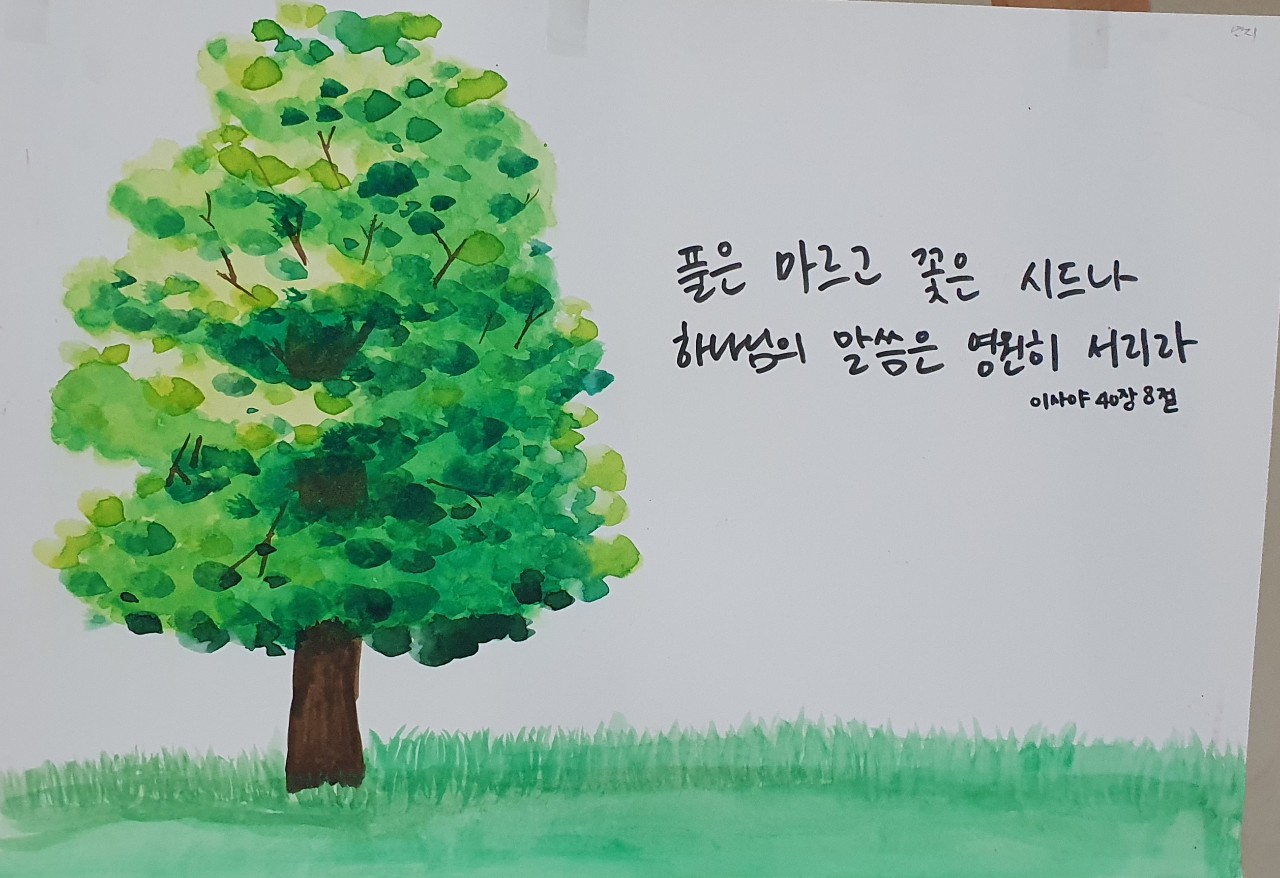 풀은 마르고 꽃은 시드나
하나님의 말씀은 영원히 서리라
이사야 40장 8절